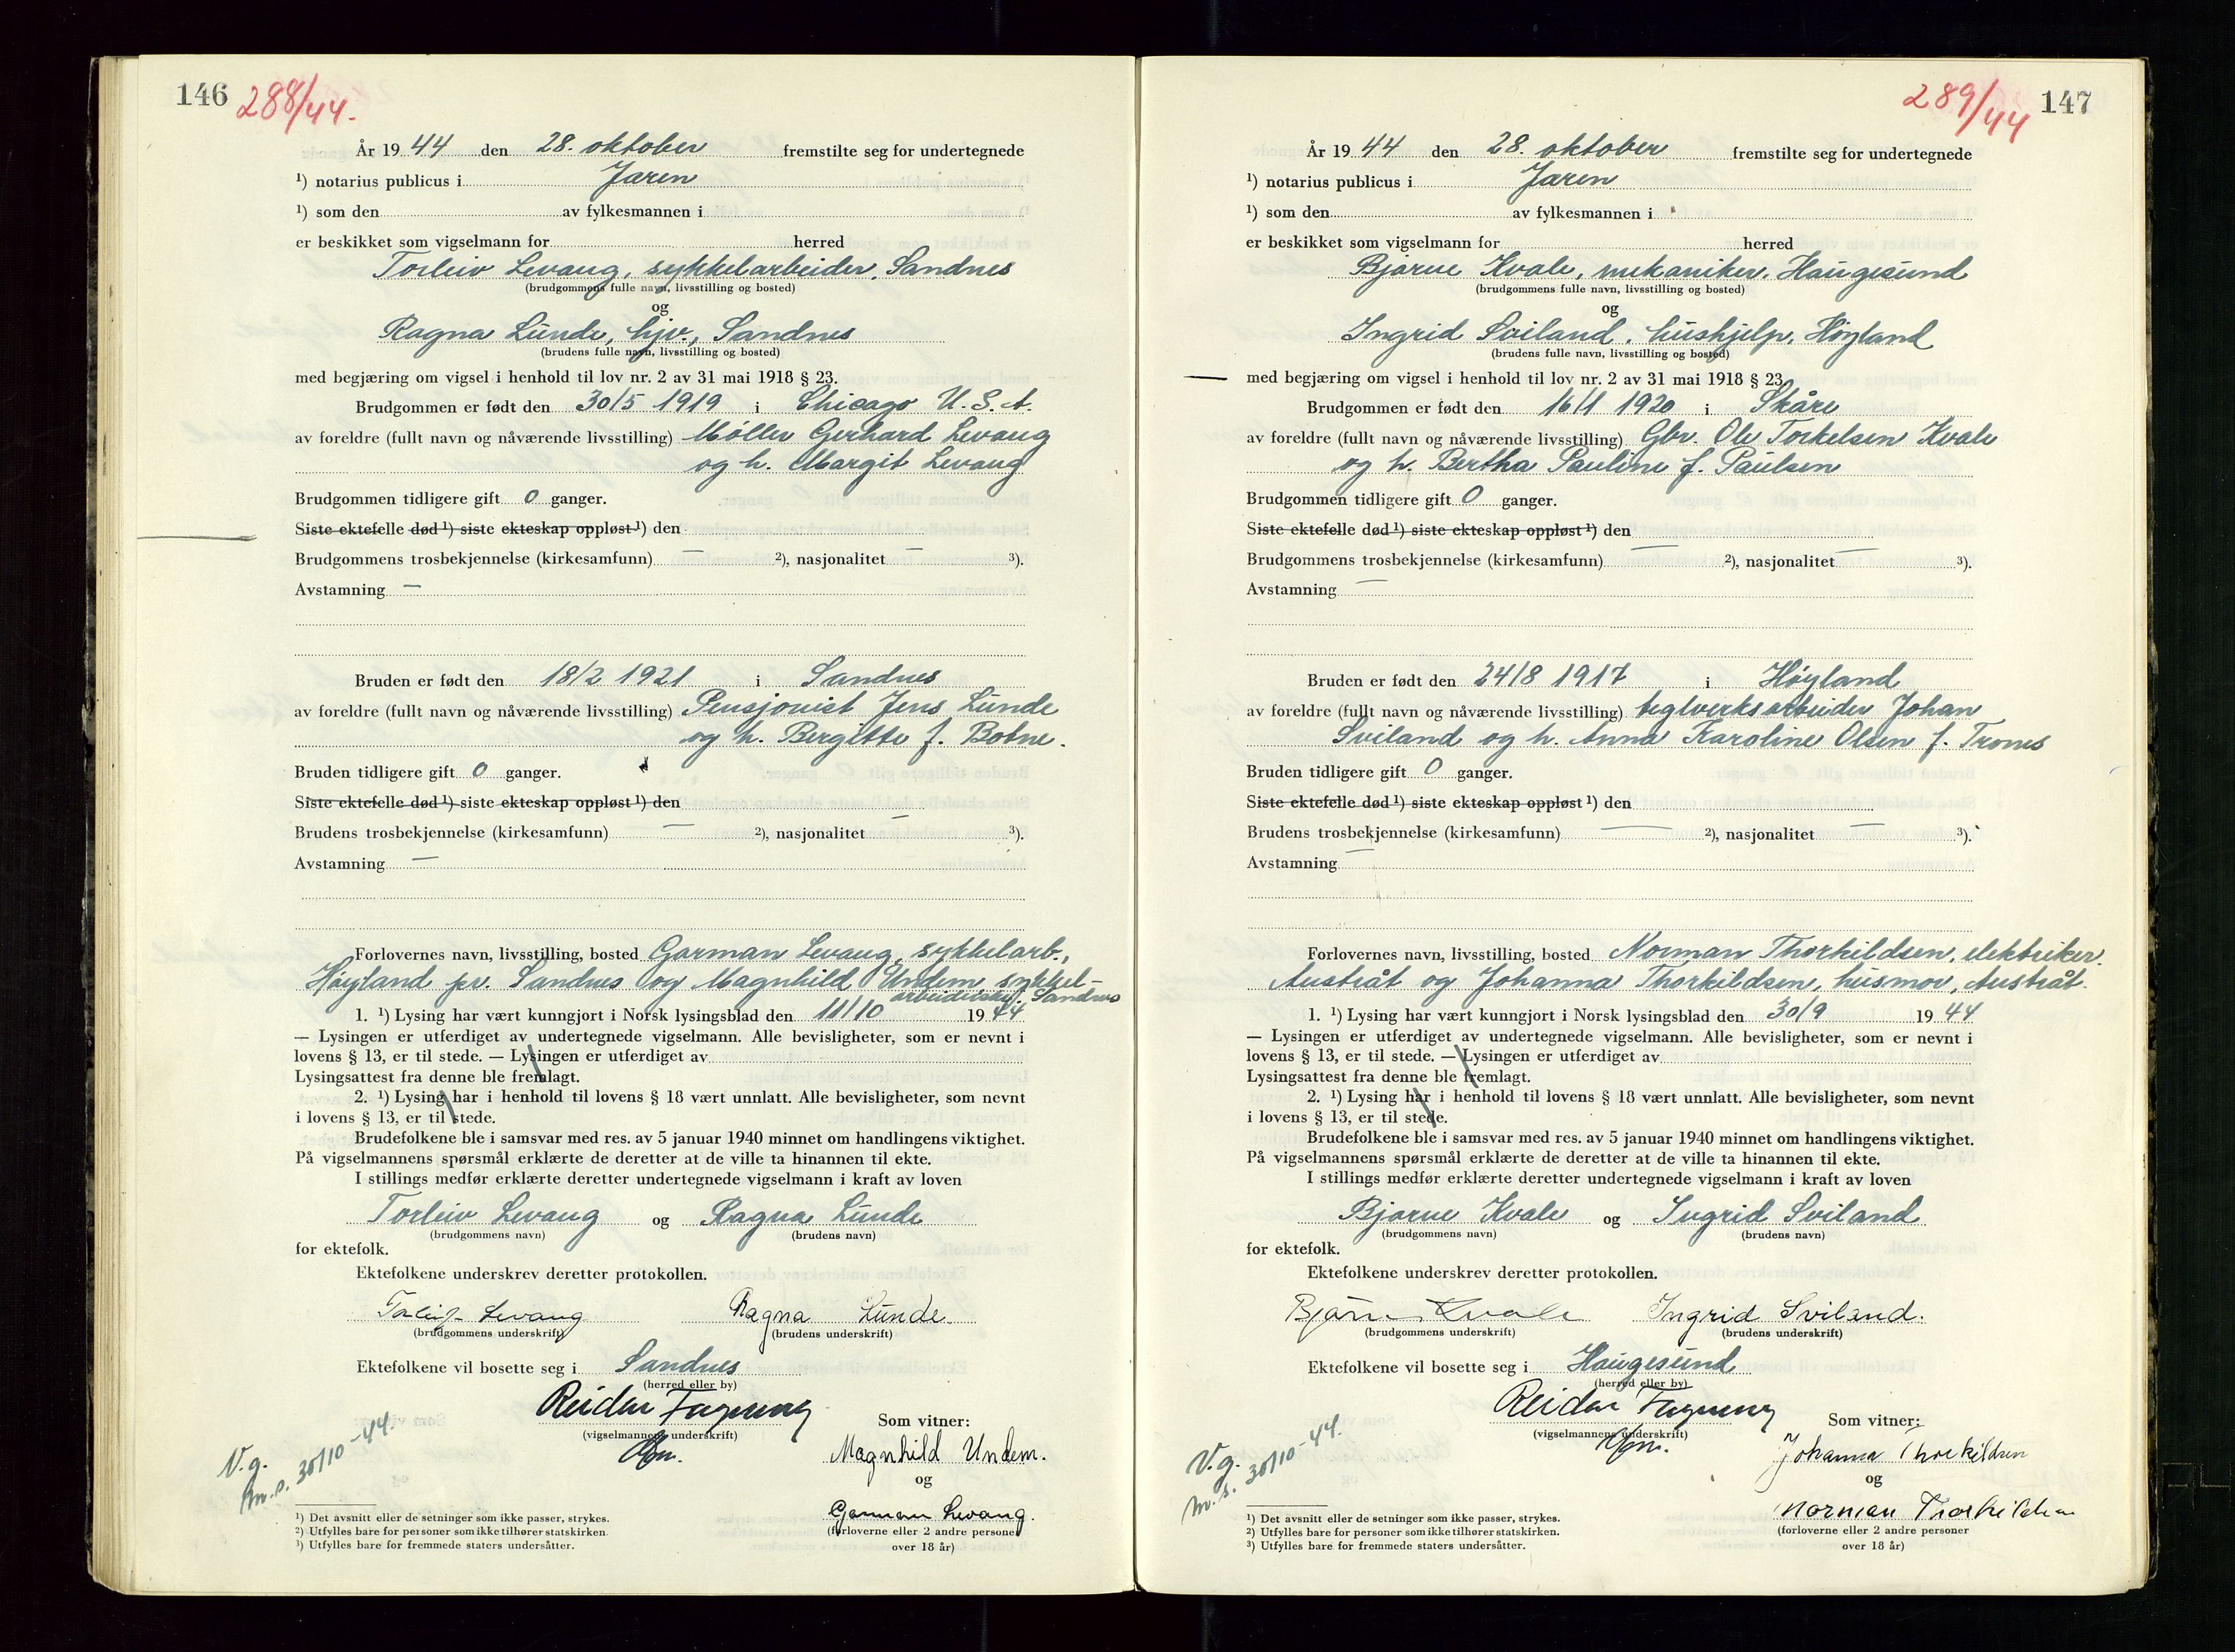 146 288/44.
År 19 44 den 28. oktober fremstilte seg for undertegnede
¹) notarius publicus i Jæren
¹) som den av fylkesmannen i
er beskikket som vigselmann for herred
Torleiv Levang, sykkelarbeider, Sandnes
(brudgommens fulle navn, livsstilling og bosted)
og
Ragna Lunde, hjv., Sandnes
(brudens fulle navn, livsstilling og bosted)
med begjæring om vigsel i henhold til lov nr. 2 av 31 mai 1918 § 23.
Brudgommen er født den 30/5 1919 i Chicago U.S.A.
av foreldre (fullt navn og nåværende livsstilling) Møller Gerhard Levang
og h. Margit Levang
Brudgommen tidligere gift 0 ganger.
Siste ektefelle død ¹) siste ekteskap oppløst ¹) den
Brudgommens trosbekjennelse (kirkesamfunn) — ²), nasjonalitet — ³).
Avstamning —
Bruden er født den 18/2 1921 i Sandnes
av foreldre (fullt navn og nåværende livsstilling) Pensjonist Jens Lunde
og h. Bergitte f. Botne.
Bruden tidligere gift 0 ganger.
Siste ektefelle død ¹) siste ekteskap oppløst ¹) den
Brudens trosbekjennelse (kirkesamfunn) — ²), nasjonalitet — ³).
Avstamning —
Forlovernes navn, livsstilling, bosted Garman Levang, sykkelarb.,
Høyland pr. Sandnes og Magnhild Undem, sykkel-
arbeiderske, Sandnes
1. ¹) Lysing har vært kunngjort i Norsk lysingsblad den 11/10 19 44
— Lysingen er utferdiget av undertegnede vigselmann. Alle bevisligheter, som er nevnt i
lovens § 13, er til stede. — Lysingen er utferdiget av
Lysingsattest fra denne ble fremlagt.
2. ¹) Lysing har i henhold til lovens § 18 vært unnlatt. Alle bevisligheter, som nevnt
i lovens § 13, er til stede.
Brudefolkene ble i samsvar med res. av 5 januar 1940 minnet om handlingens viktighet.
På vigselmannens spørsmål erklærte de deretter at de ville ta hinannen til ekte.
I stillings medfør erklærte deretter undertegnede vigselmann i kraft av loven
Torleiv Levang og Ragna Lunde
(brudgommens navn) (brudens navn)
for ektefolk.
Ektefolkene underskrev deretter protokollen.
Torleiv Levang Ragna Lunde
(brudgommens underskrift) (brudens underskrift)
Ektefolkene vil bosette seg i Sandnes
(herred eller by)
Reidar
(vigselmannens underskrift)
Som vitner:
Magnhild Undem.
og
Garman Levang.
(forloverne eller 2 andre personer
over 18 år)
V.g.
m.s. 30/10-44.
¹) Det avsnitt eller de setninger som ikke passer, strykes.
²) Utfylles bare for personer som ikke tilhører statskirken.
³) Utfylles bare for fremmede staters undersåtter.
289/44 147
År 19 44 den 28. oktober fremstilte seg for undertegnede
¹) notarius publicus i Jæren
¹) som den av fylkesmannen i
er beskikket som vigselmann for herred
Bjarne Kvale, mekaniker, Haugesund
(brudgommens fulle navn, livsstilling og bosted)
og
Ingrid Sviland, hushjelp, Høyland
(brudens fulle navn, livsstilling og bosted)
med begjæring om vigsel i henhold til lov nr. 2 av 31 mai 1918 § 23.
Brudgommen er født den 16/1 1920 i Skåre
av foreldre (fullt navn og nåværende livsstilling) Gbr. Ole Torkelsen Kvale
og h. Bertha Pauline f. Paulsen
Brudgommen tidligere gift 0 ganger.
Siste ektefelle død ¹) siste ekteskap oppløst ¹) den
Brudgommens trosbekjennelse (kirkesamfunn) — ²), nasjonalitet — ³).
Avstamning —
Bruden er født den 24/8 1917 i Høyland
av foreldre (fullt navn og nåværende livsstilling) teglverksarbeider Johan
Sviland og h. Anna Karoline Olsen f. Trones
Bruden tidligere gift 0 ganger.
Siste ektefelle død ¹) siste ekteskap oppløst ¹) den
Brudens trosbekjennelse (kirkesamfunn) — ²), nasjonalitet — ³).
Avstamning —
Forlovernes navn, livsstilling, bosted Norman Thorkildsen, elektriker.
Austråt og Johanna Thorkildsen, husmor, Austråt.
1. ¹) Lysing har vært kunngjort i Norsk lysingsblad den 30/9 19 44
— Lysingen er utferdiget av undertegnede vigselmann. Alle bevisligheter, som er nevnt i
lovens § 13, er til stede. — Lysingen er utferdiget av
Lysingsattest fra denne ble fremlagt.
2. ¹) Lysing har i henhold til lovens § 18 vært unnlatt. Alle bevisligheter, som nevnt
i lovens § 13, er til stede.
Brudefolkene ble i samsvar med res. av 5 januar 1940 minnet om handlingens viktighet.
På vigselmannens spørsmål erklærte de deretter at de ville ta hinannen til ekte.
I stillings medfør erklærte deretter undertegnede vigselmann i kraft av loven
Bjarne Kvale og Ingrid Sviland
(brudgommens navn) (brudens navn)
for ektefolk.
Ektefolkene underskrev deretter protokollen.
Bjarne Kvale Ingrid Sviland.
(brudgommens underskrift) (brudens underskrift)
Ektefolkene vil bosette seg i Haugesund
(herred eller by)
Reidar
(vigselmannens underskrift)
Som vitner:
Johanna Thorkildsen
og
Norman Thorkildsen
(forloverne eller 2 andre personer
over 18 år)
V.g.
m.s. 30/10-44.
¹) Det avsnitt eller de setninger som ikke passer, strykes.
²) Utfylles bare for personer som ikke tilhører statskirken.
³) Utfylles bare for fremmede staters undersåtter.